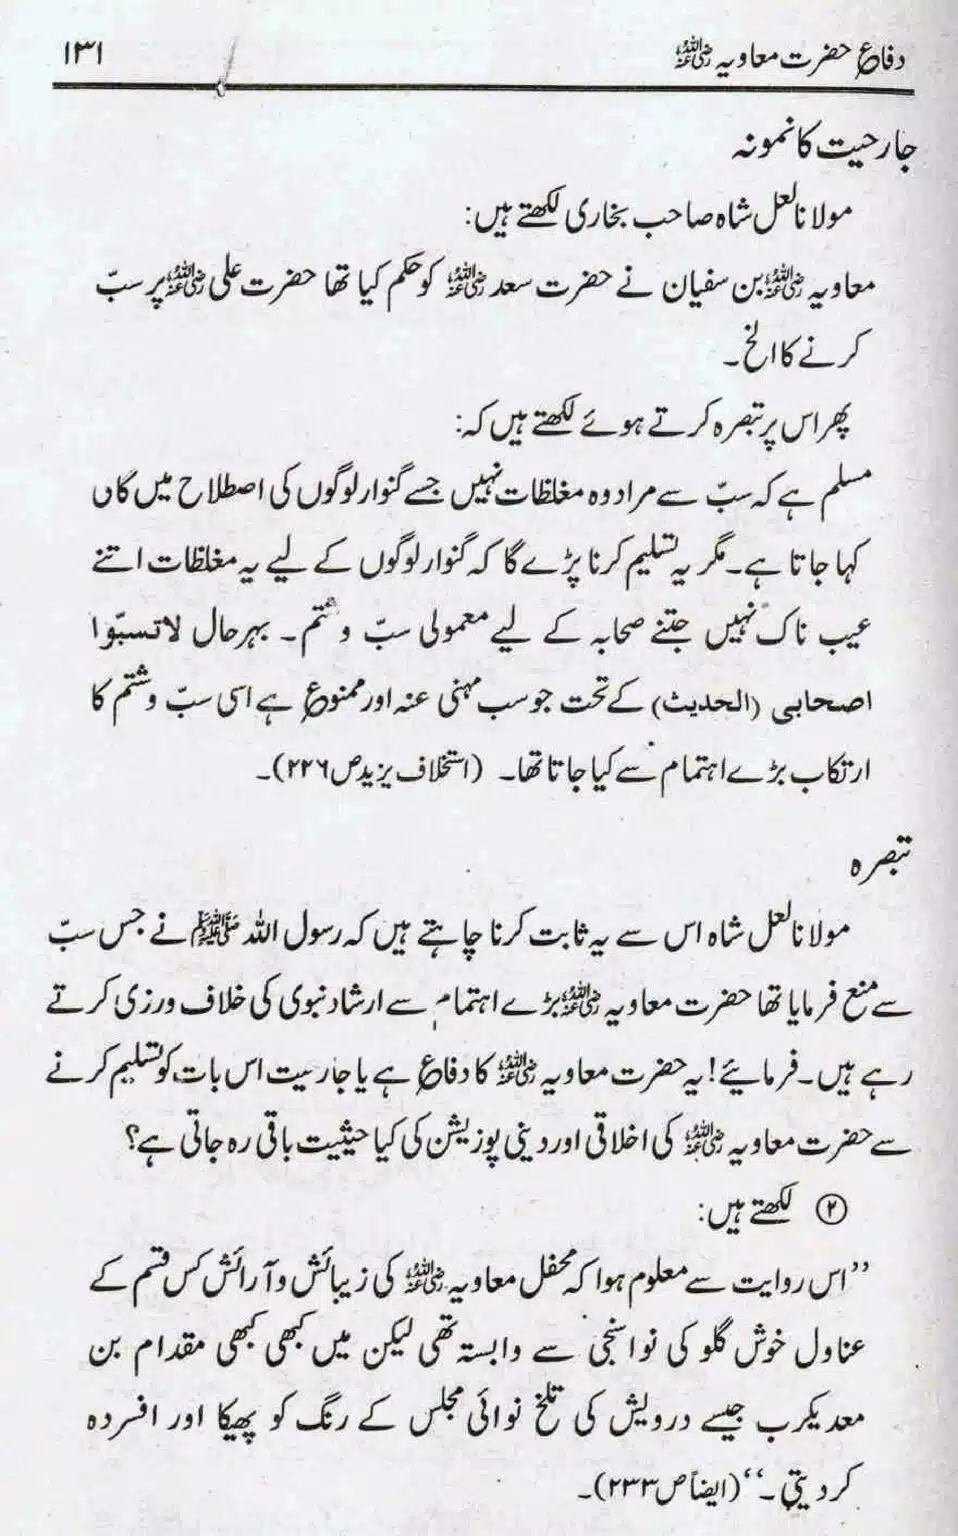 دفاعِ حضرت معاویہ رضی اللہ عنہ ۱۳۱
جارحیت کا نمونہ
مولانا لعل شاہ صاحب بخاری لکھتے ہیں:
معاویہ رضی اللہ عنہ بن سفیان نے حضرت سعد رضی اللہ عنہ کو حکم کیا تھا حضرت علی رضی اللہ عنہ پر سبّ
کرنے کا الخ۔
پھر اس پر تبصرہ کرتے ہوئے لکھتے ہیں کہ:
مسلم ہے کہ سبّ سے مراد وہ مغلظات نہیں جسے گنوار لوگوں کی اصطلاح میں گاں
کہا جاتا ہے۔ مگر یہ تسلیم کرنا پڑے گا کہ گنوار لوگوں کے لیے یہ مغلظات اتنے
عیب ناک نہیں جتنے صحابہ کے لیے معمولی سبّ و شتم۔ بہرحال لا تسبّوا
اصحابی (الحدیث) کے تحت جو سب منہی عنہ اور ممنوع ہے اسی سبّ و شتم کا
ارتکاب بڑے اہتمام سے کیا جاتا تھا۔ (استخلاف یزید ص ۲۲۶)۔
تبصرہ
مولانا لعل شاہ اس سے یہ ثابت کرنا چاہتے ہیں کہ رسول اللہ ﷺ نے جس سبّ
سے منع فرمایا تھا حضرت معاویہ رضی اللہ عنہ بڑے اہتمام سے ارشاد نبوی کی خلاف ورزی کرتے
رہے ہیں۔ فرمائیے! یہ حضرت معاویہ رضی اللہ عنہ کا دفاع ہے یا جارحیت اس بات کو تسلیم کرنے
سے حضرت معاویہ رضی اللہ عنہ کی اخلاقی اور دینی پوزیشن کی کیا حیثیت باقی رہ جاتی ہے؟
② لکھتے ہیں:
’’اس روایت سے معلوم ہوا کہ محفل معاویہ رضی اللہ عنہ کی زیبائش و آرائش کس قسم کے
عناول خوش گلو کی نواسنجی سے وابستہ تھی لیکن میں کبھی کبھی مقدام بن
معدیکرب جیسے درویش کی تلخ نوائی مجلس کے رنگ کو پھیکا اور افسردہ
کر دیتی۔‘‘ (ایضاً ص ۲۳۳)۔